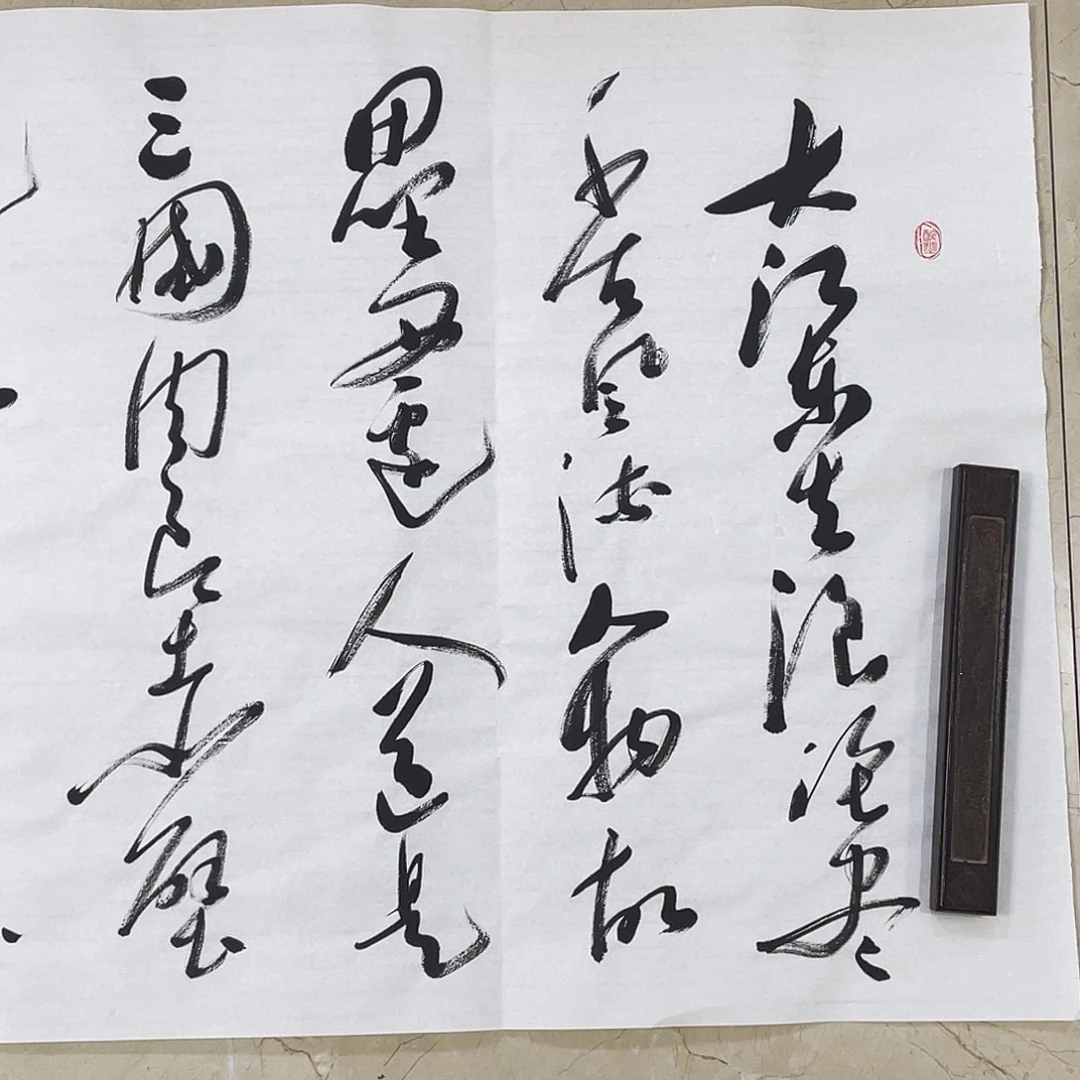 大江東去浪淘尽
千古風流人物故
壘西邊人道是
三國周郎赤壁